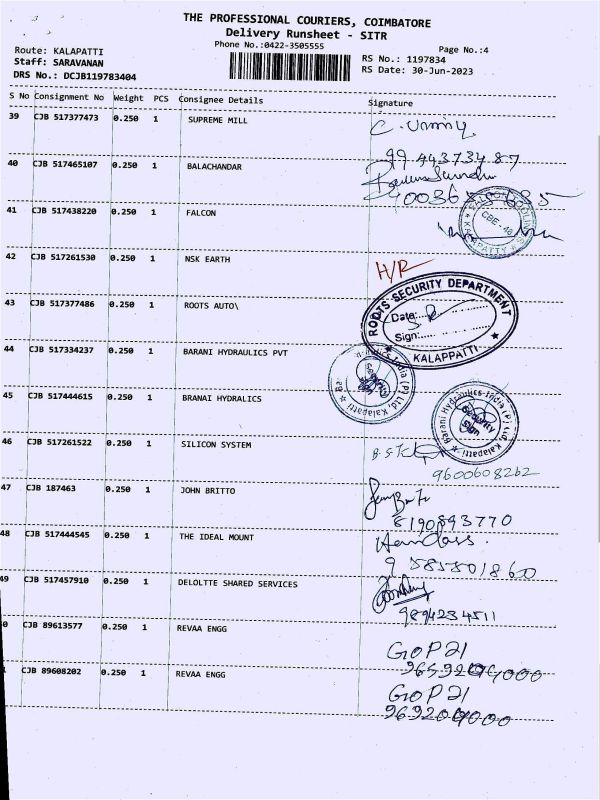 THE PROFESSIONAL COURIERS, COIMBATORE
Delivery Runsheet - SITR
Phone No.:0422-3505555
Page No.:4
Route: KALAPATTI
Staff: SARAVANAN
DRS No.: DCJB119783404
RS No.: 1197834
RS Date: 30-Jun-2023
S No Consignment No Weight PCS Consignee Details Signature
39 CJB 517377473 0.250 1 SUPREME MILL
99 44373487
40 CJB 517465107 0.250 1 BALACHANDAR
41 CJB 517438220 0.250 1 FALCON
CBE - 48
KALAPATTY
42 CJB 517261530 0.250 1 NSK EARTH
H/R
43 CJB 517377486 0.250 1 ROOTS AUTO\
ROOTS SECURITY DEPARTMENT
Date:
Sign:
KALAPPATTI
44 CJB 517334237 0.250 1 BARANI HYDRAULICS PVT
45 CJB 517444615 0.250 1 BRANAI HYDRALICS
Barani Hydraulics-India (P) Ltd, Kalapatti
Security
Sign
46 CJB 517261522 0.250 1 SILICON SYSTEM
9600608262
47 CJB 187463 0.250 1 JOHN BRITTO
8190893770
48 CJB 517444545 0.250 1 THE IDEAL MOUNT
49 CJB 517457910 0.250 1 DELOLTTE SHARED SERVICES
9894234511
0 CJB 89613577 0.250 1 REVAA ENGG
GOPAl
CJB 89608202 0.250 1 REVAA ENGG
GOPAl